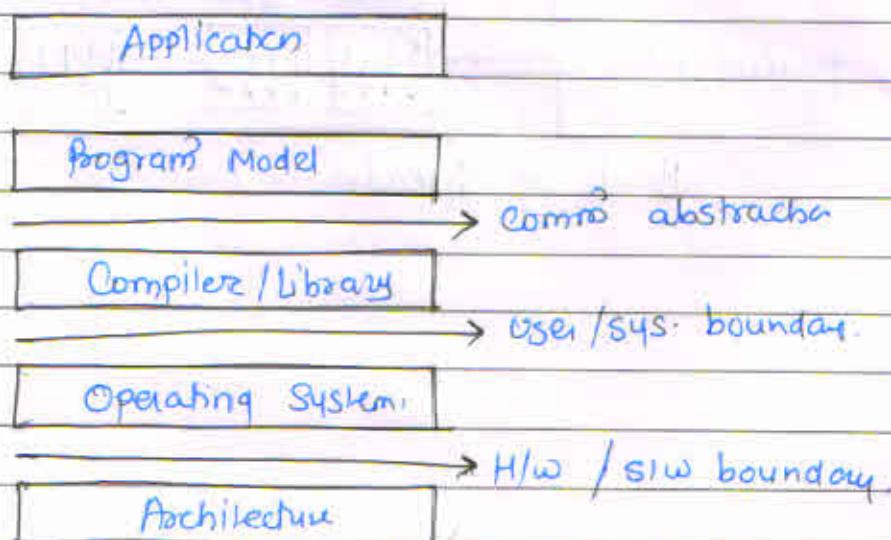 Application
Program Model
comm̃ abstraction
Compiler / Library
user / sys. boundary.
Operating System.
H/w / S/w boundary.
Architecture